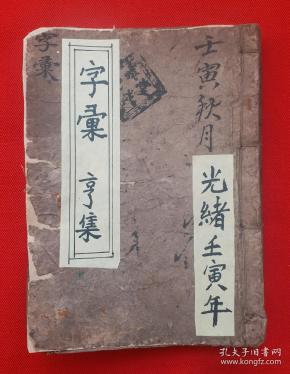 壬寅秋月
光緒壬寅年
字彙
字彙 亨集
孔夫子旧书网